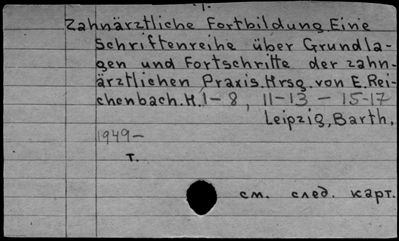 1.
Zahnärztliche Fortbildung. Eine
Schriftenreihe über Grundla-
gen und Fortschritte der zahn-
ärztlichen Praxis. Hrsg. von E. Rei-
chenbach. H. 1-8, 11-13 - 15-17
Leipzig, Barth,
1949-
T.
см. след. карт.